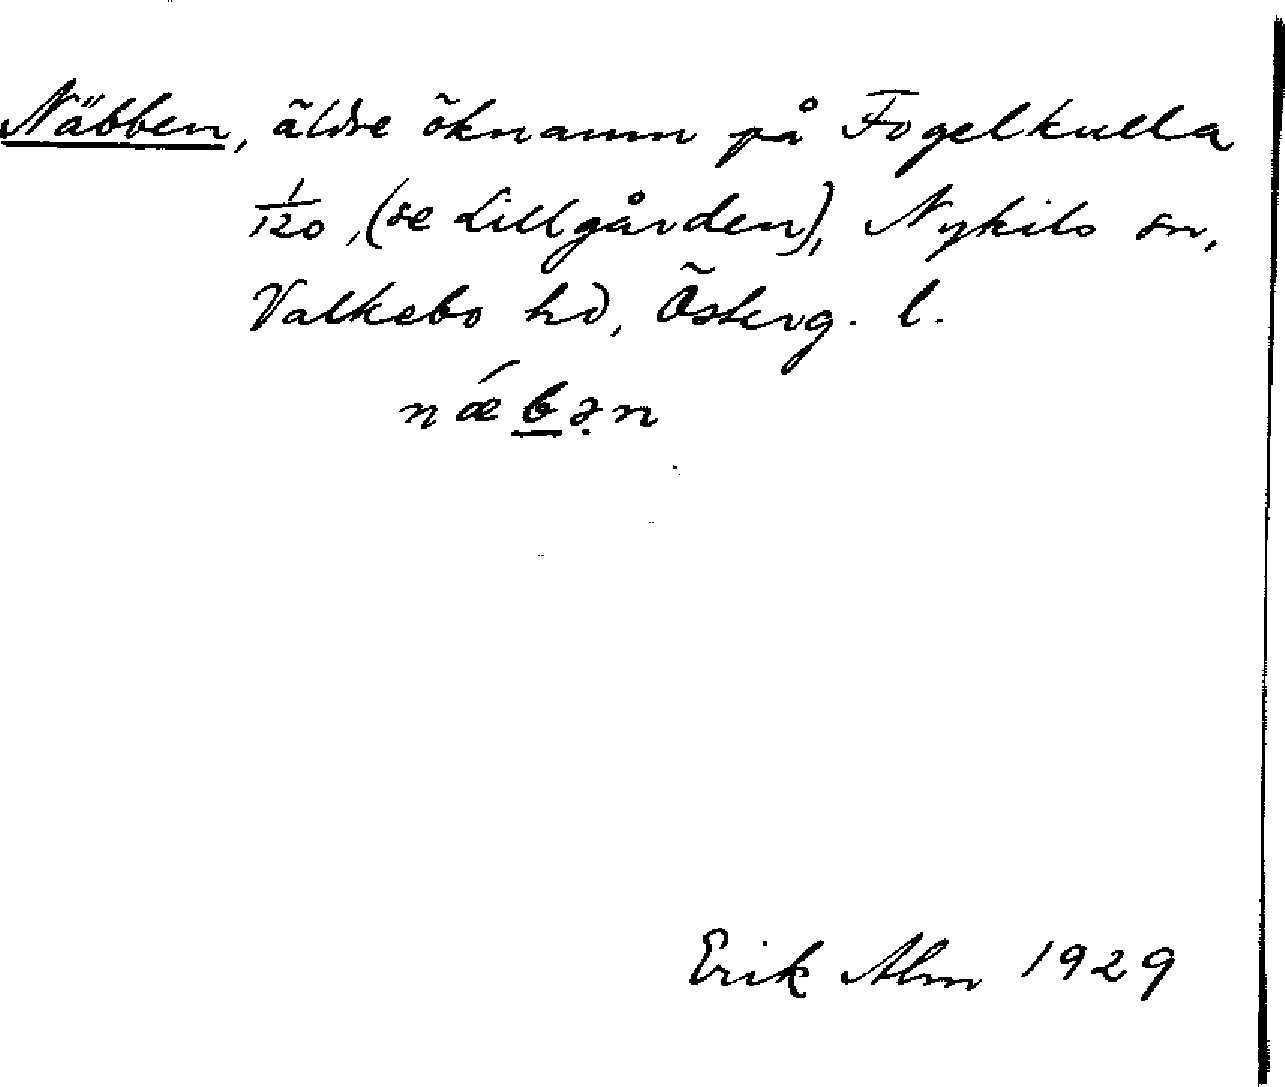 Näbben, äldre öknamn på Fogelkulla
1/120, (se Lillgården), Nykils sn,
Valkebo hd, Österg. l.
nǽbə̣n
Erik Alm 1929